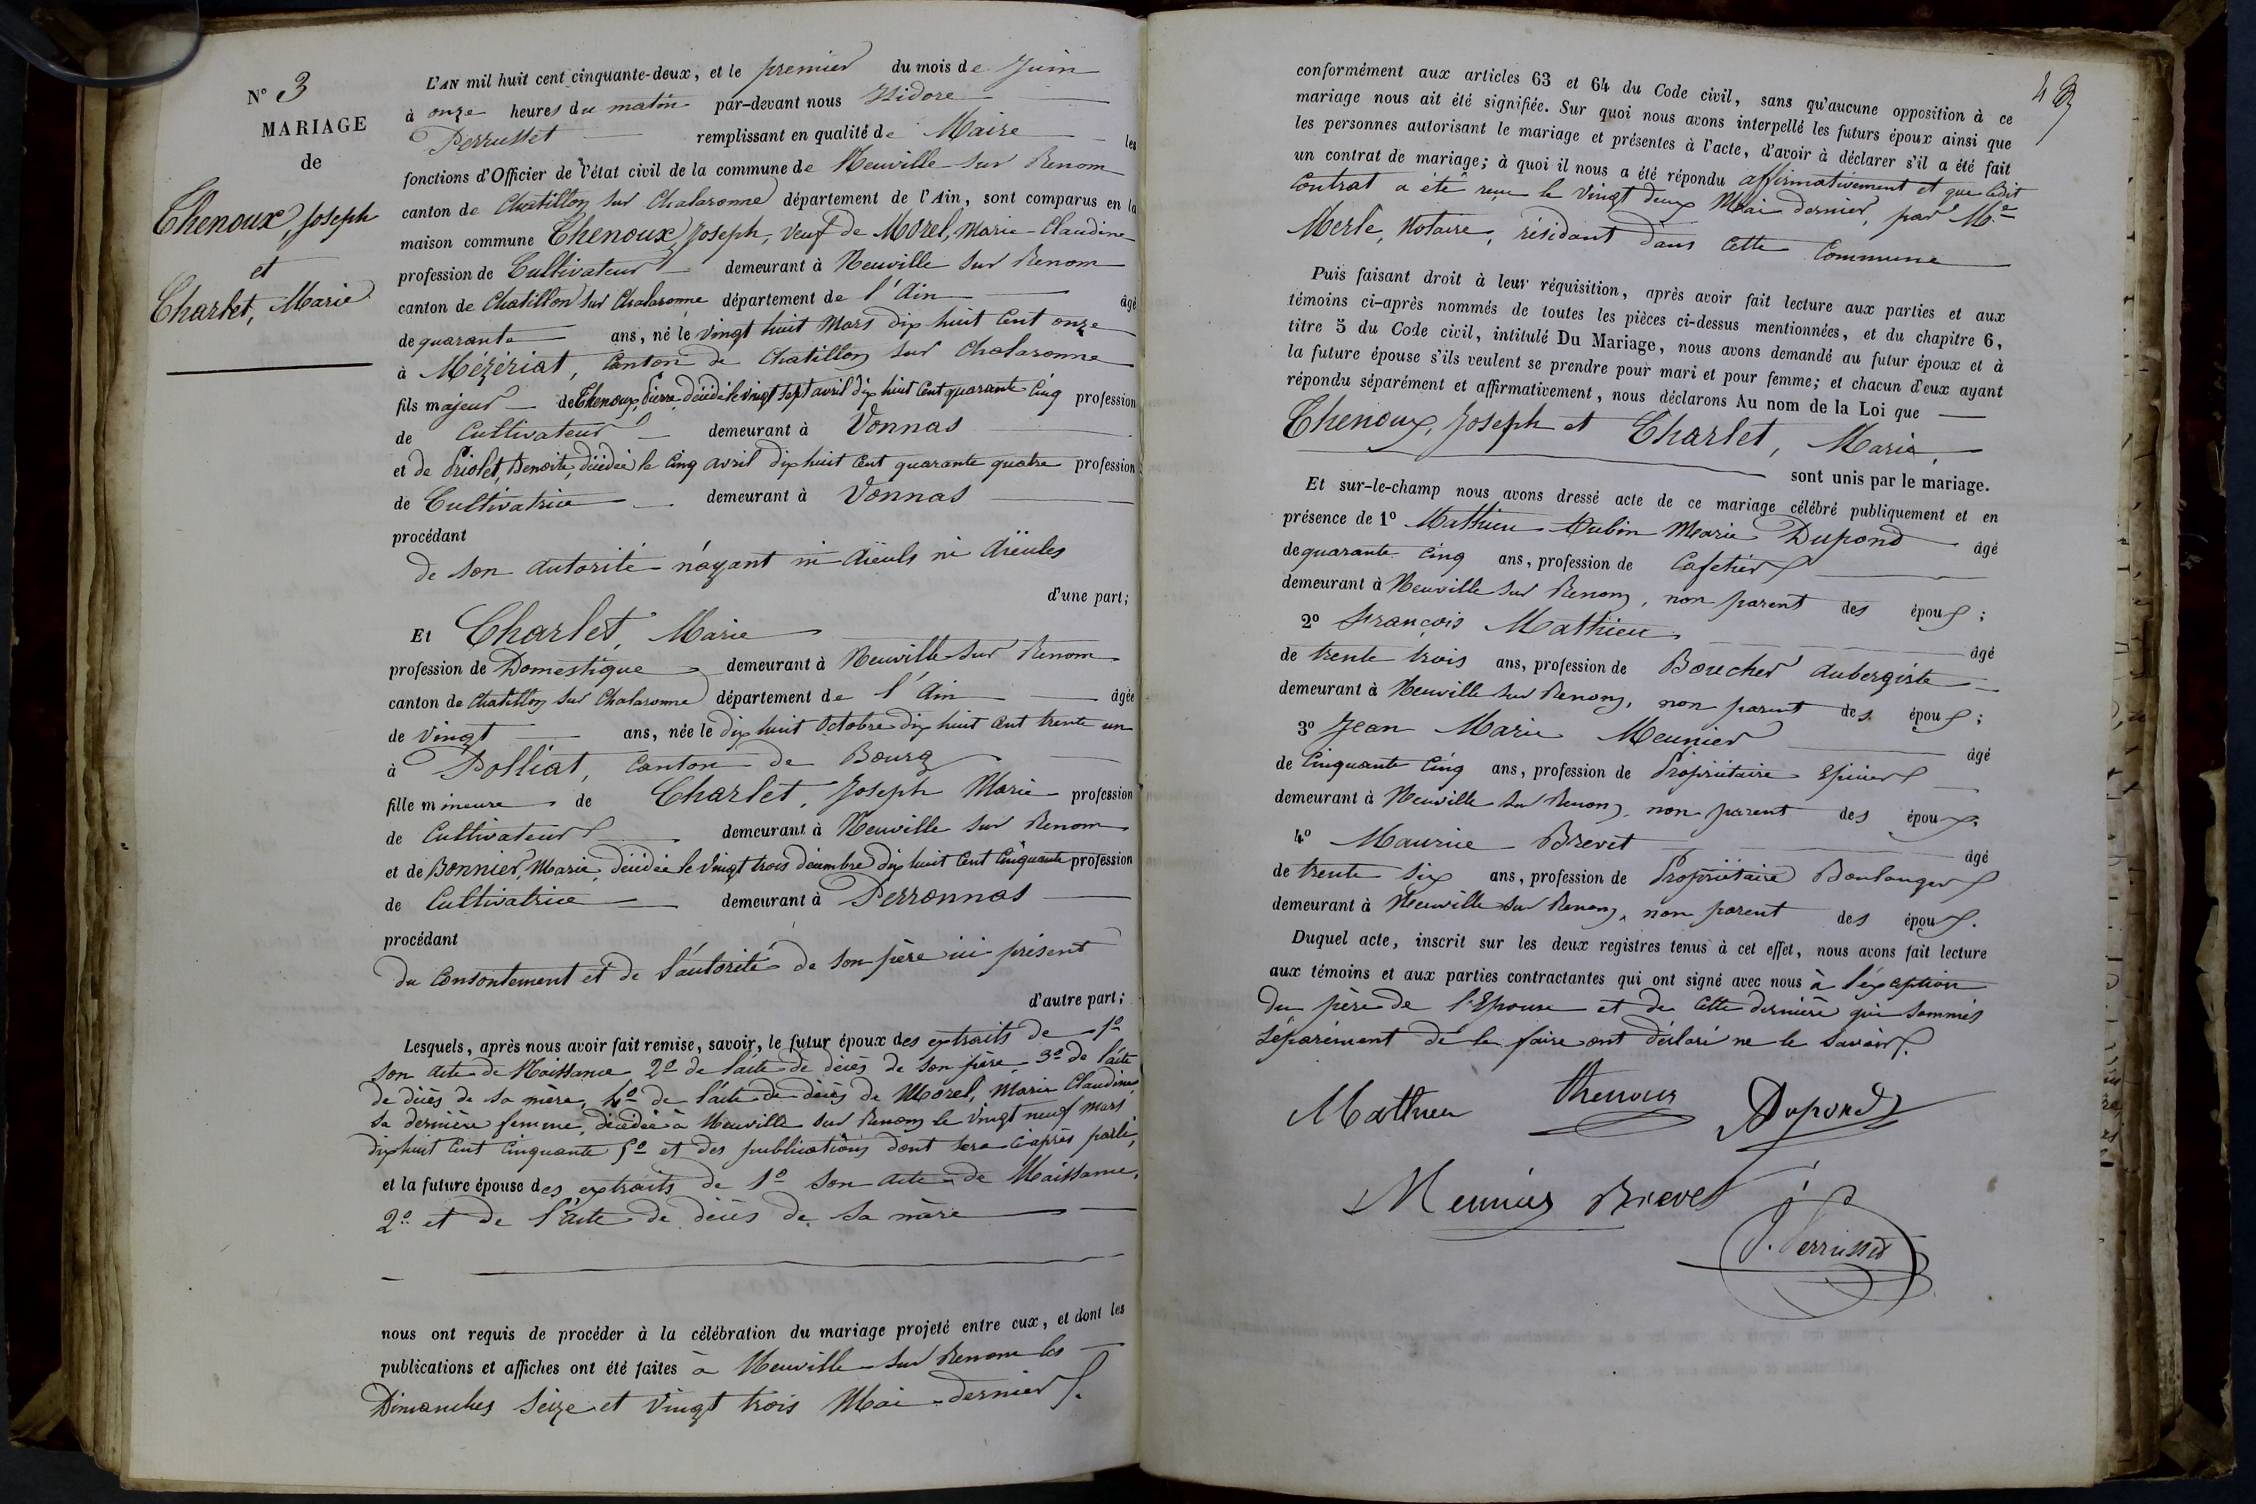 N° 3
MARIAGE
de
Thenoux, Joseph
et
Charlet, Marie
L'AN mil huit cent cinquante-deux, et le premier du mois de Juin
à onze heures du matin par-devant nous Isidore
Perrusset remplissant en qualité de Maire les
fonctions d'Officier de l'état civil de la commune de Neuville sur Renom
canton de Chatillon sur Chalaronne département de l'Ain, sont comparus en la
maison commune Thenoux, Joseph, veuf de Morel, Marie Claudine
profession de Cultivateur demeurant à Neuville sur Renom
canton de Chatillon sur Chalaronne département de l'Ain âgé
de quarante ans, né le vingt huit Mars dix huit cent onze
à Mézériat, Canton de Chatillon sur Chalaronne
fils majeur de Thenoux, Pierre, décédé le vingt sept avril dix huit cent quarante cinq profession
de Cultivateur demeurant à Vonnas
et de Priolet, Benoite, décédée le cinq avril dix huit cent quarante quatre profession
de Cultivatrice demeurant à Vonnas
procédant
de son autorité n'ayant ni aïeuls ni aïeules
d'une part;
Et Charlet, Marie
profession de Domestique demeurant à Neuville sur Renom
canton de Chatillon sur Chalaronne département de l'Ain âgée
de vingt ans, née le dix huit Octobre dix huit cent trente un
à Polliat, canton de Bourg
fille mineure de Charlet, Joseph Marie profession
de Cultivateur demeurant à Neuville sur Renom
et de Bonnier, Marie, décédée le vingt trois décembre dix huit cent cinquante profession
de Cultivatrice demeurant à Perronnas
procédant
du consontement et de l'autorité de son père ici présent
d'autre part;
Lesquels, après nous avoir fait remise, savoir, le futur époux des extraits de 1°
son acte de Naissance 2° de l'acte de décès de son père 3° de l'acte
de décès de sa mère, 4° de l'acte de décès de Morel, Marie Claudine,
sa dernière femme, décédée à Neuville sur Renom le vingt neuf mars
dix huit cent cinquante 5° et des publications dont sera ci-après parlé,
et la future épouse des extraits de 1° son acte de Naissance,
2° et de l'acte de décès de sa mère
nous ont requis de procéder à la célébration du mariage projeté entre eux, et dont les
publications et affiches ont été faites à Neuville sur Renom les
Dimanches seize et vingt trois Mai dernier.
conformément aux articles 63 et 64 du Code civil, sans qu'aucune opposition à ce
mariage nous ait été signifiée. Sur quoi nous avons interpellé les futurs époux ainsi que
les personnes autorisant le mariage et présentes à l'acte, d'avoir à déclarer s'il a été fait
un contrat de mariage; à quoi il nous a été répondu affirmativement et que ledit
contrat a été reçu le vingt deux Mai dernier, par Me
Merle, Notaire, résidant dans cette Commune
Puis faisant droit à leur réquisition, après avoir fait lecture aux parties et aux
témoins ci-après nommés de toutes les pièces ci-dessus mentionnées, et du chapitre 6,
titre 5 du Code civil, intitulé Du Mariage, nous avons demandé au futur époux et à
la future épouse s'ils veulent se prendre pour mari et pour femme; et chacun d'eux ayant
répondu séparément et affirmativement, nous déclarons Au nom de la Loi que
Thenoux, Joseph et Charlet, Marie,
sont unis par le mariage.
Et sur-le-champ nous avons dressé acte de ce mariage célébré publiquement et en
présence de 1° Mathieu Aubin Marie Dupond âgé
de quarante cinq ans, profession de Cafetier
demeurant à Neuville sur Renom, non parent des époux;
2° François Mathieu âgé
de trente trois ans, profession de Boucher Aubergiste
demeurant à Neuville sur Renom, non parent des époux;
3° Jean Marie Meunier âgé
de Cinquante Cinq ans, profession de Propriétaire Epicier
demeurant à Neuville sur Renom, non parent des époux;
4° Maurice Brevet âgé
de trente six ans, profession de Propriétaire Boulanger
demeurant à Neuville sur Renom, non parent des époux.
Duquel acte, inscrit sur les deux registres tenus à cet effet, nous avons fait lecture
aux témoins et aux parties contractantes qui ont signé avec nous à l'exception
du père de l'Epouse et de cette dernière qui sommés
séparément de le faire ont déclaré ne le savoir.
Mathieu Thenoux Dupond
Meunier Brevet
I. Perrusset